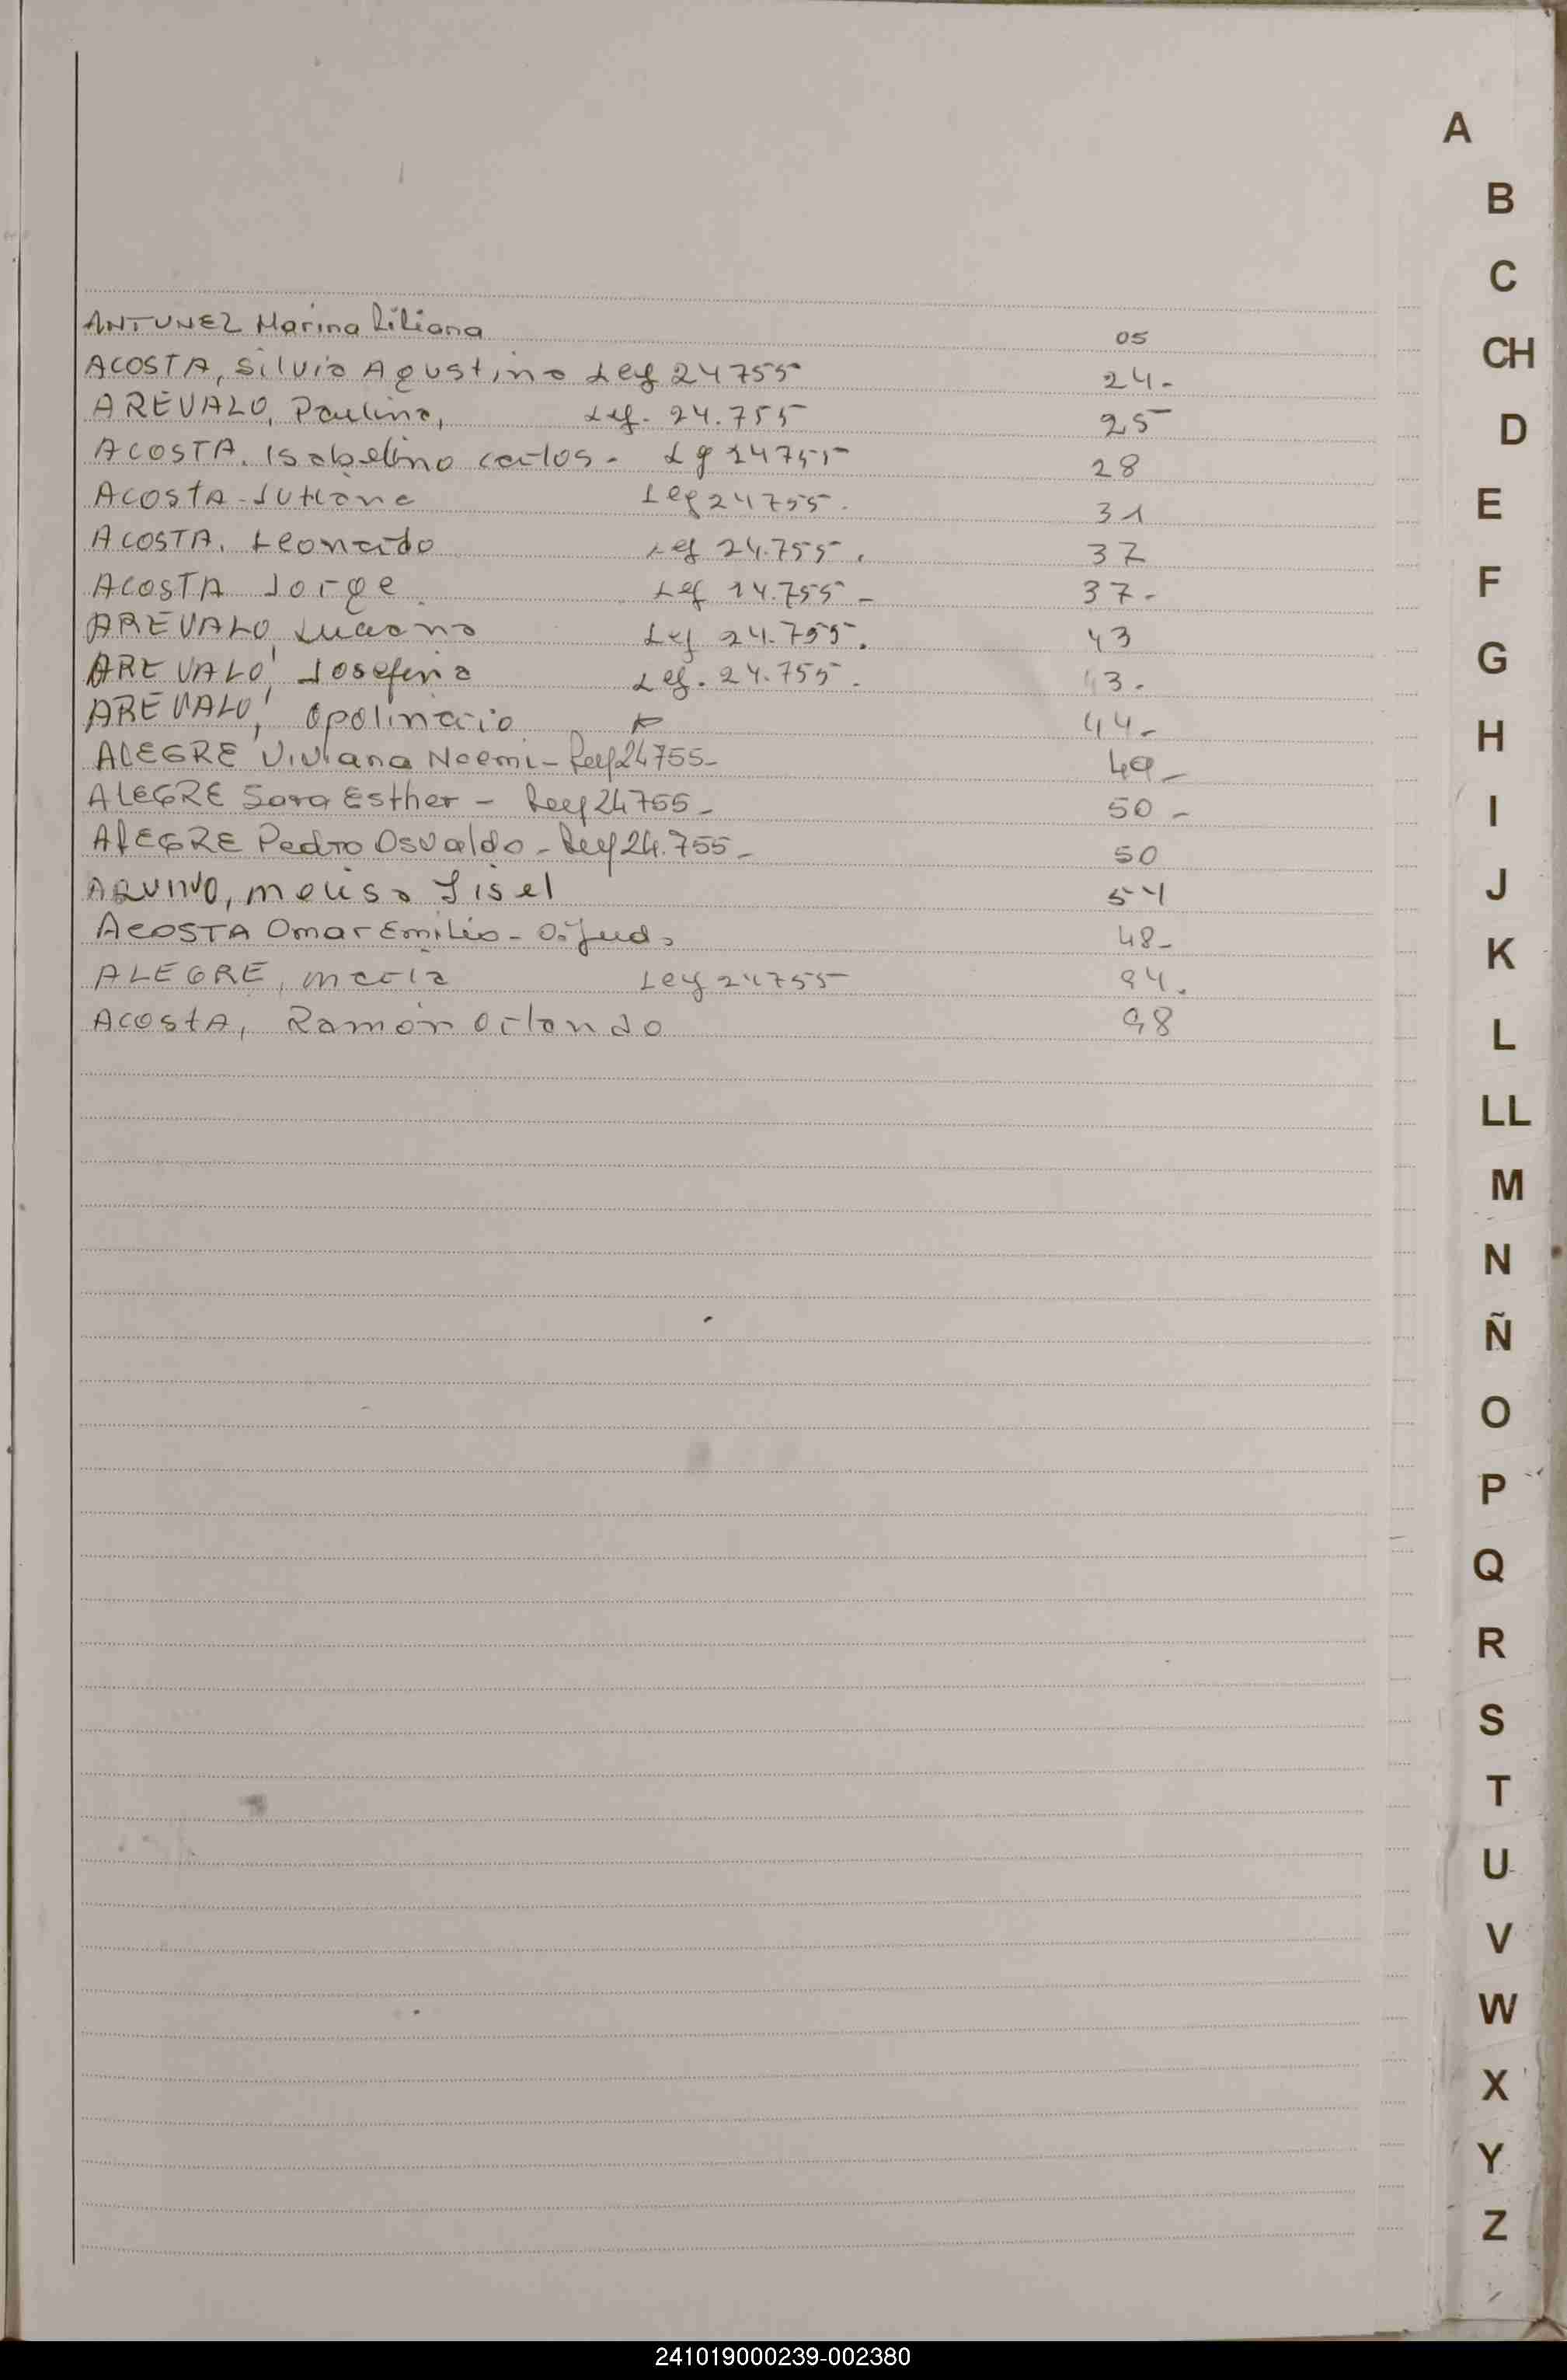 ANTUNEZ Marina Liliana 05
ACOSTA, Silvio Agustino Ley 24755 24-
AREVALO, Paulino, Ley. 24.755 25
ACOSTA. Isabelino Carlos - Ley 24755 28
ACOSTA - Ley 24755. 31
ACOSTA. Leonardo Ley 24.755. 37
ACOSTA Jorge Ley 24.755 - 37-
AREVALO, Luciano Ley 24.755. 43
AREVALO, Josefina Ley. 24.755. 43.
AREVALO, Apolinario 44-
ALEGRE Viviana Noemi - Ley 24755- 49-
ALEGRE Sara Esther - Ley 24755- 50-
ALEGRE Pedro Osvaldo - Ley 24.755- 50
AQUINO, Melisa Gisel 54
ACOSTA Omar Emilio - O. Jud. 48-
ALEGRE, Maria Ley 24755 94.
ACOSTA, Ramón Orlando 98
A
B
C
CH
D
E
F
G
H
I
J
K
L
LL
M
N
Ñ
O
P
Q
R
S
T
U
V
W
X
Y
Z
241019000239-002380